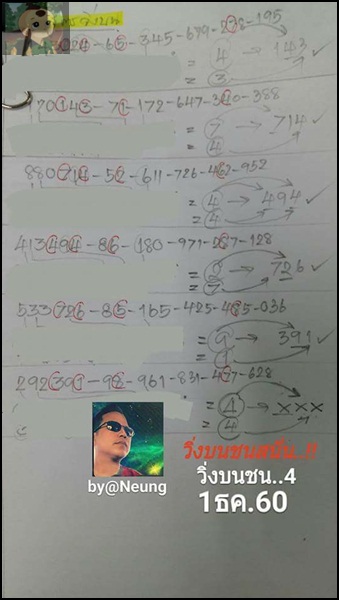 024-65-345-679-238-195
= 4 → 143 ✓
= 3
170143-71-172-647-340-388
= 7 → 714 ✓
= 4
880714-52-611-726-467-952
= 4 → 494 ✓
= 4
413494-86-180-971-287-128
= 0 → 726 ✓
= 7
533726-85-165-425-485-036
= 9 → 391 ✓
= 1
292391-98-961-831-477-628
= 4 → XXX
= 4
วิ่งบนชนสนั่น..!!
วิ่งบนชน..4
by@Neung
1ธค.60